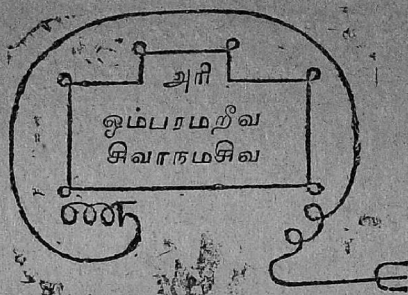 அரி
ஓம்பரமறீவ
சிவாநமசிவ
ணு